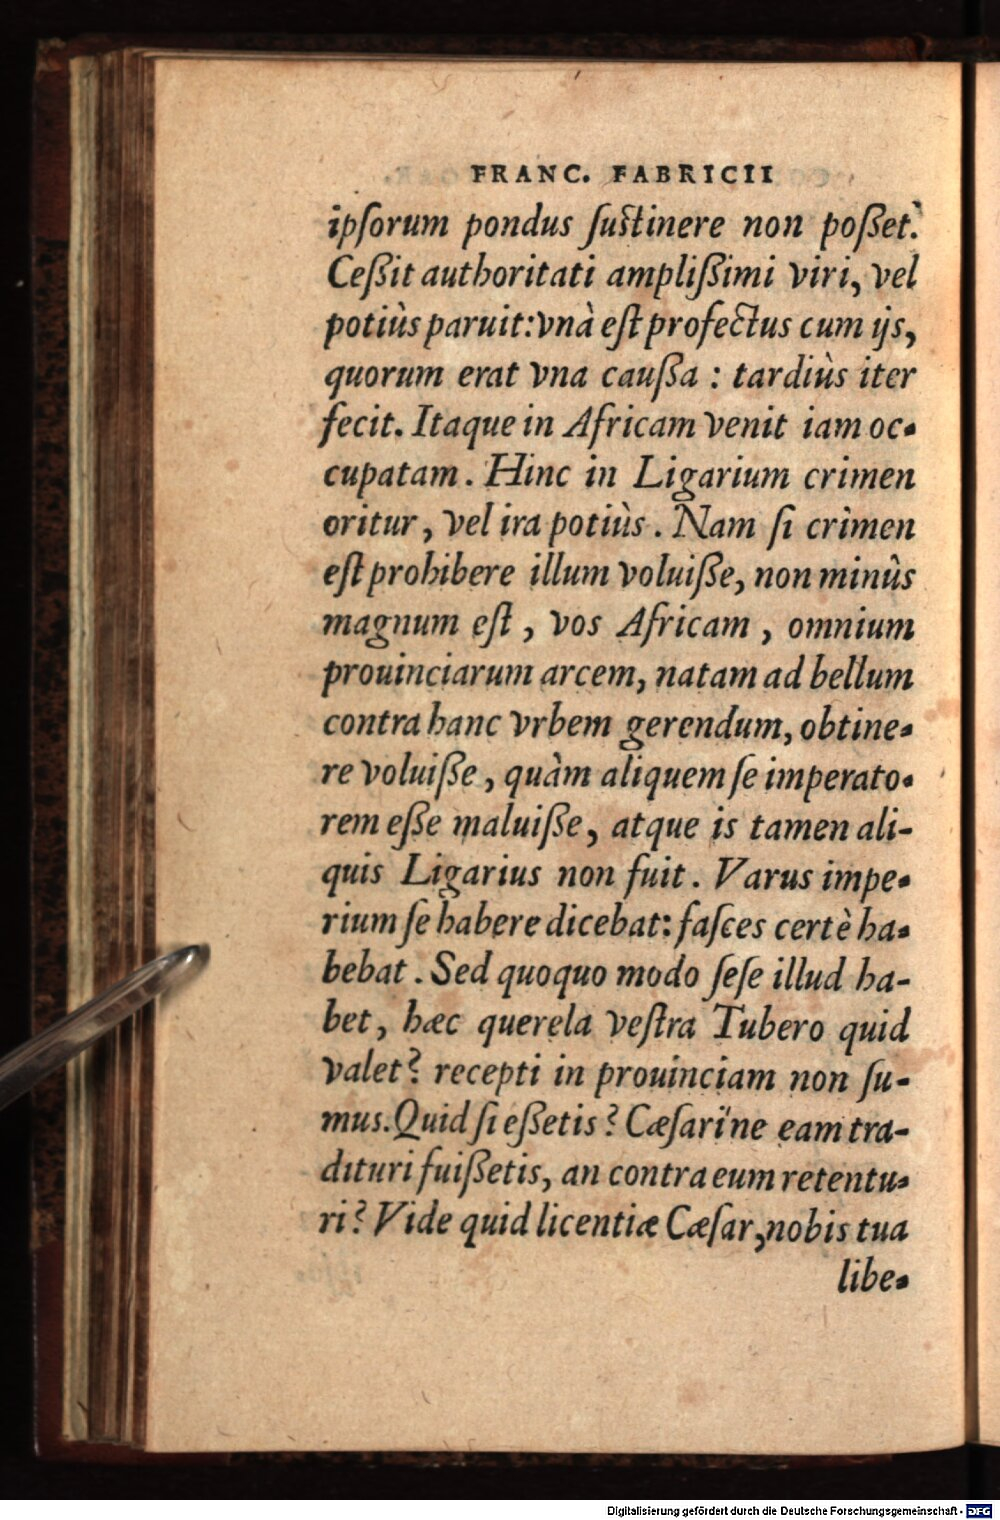 FRANC. FABRICII
ipſorum pondus ſuſtinere non poßet.
Ceßit authoritati amplißimi viri, vel
potiùs paruit: vnà eſt profectus cum ijs,
quorum erat vna caußa : tardiùs iter
fecit. Itaque in Africam venit iam oc-
cupatam. Hinc in Ligarium crimen
oritur, vel ira potiùs. Nam ſi crìmen
eſt prohibere illum voluiße, non minùs
magnum eſt, vos Africam, omnium
prouinciarum arcem, natam ad bellum
contra hanc vrbem gerendum, obtine-
re voluiße, quàm aliquem ſe imperato-
rem eße maluiße, atque is tamen ali-
quis Ligarius non fuit. Varus impe-
rium ſe habere dicebat: faſces certè ha-
bebat. Sed quoquo modo ſeſe illud ha-
bet, hæc querela veſtra Tubero quid
valet? recepti in prouinciam non ſu-
mus. Quid ſi eßetis? Cæſari'ne eam tra-
dituri fuißetis, an contra eum retentu-
ri? Vide quid licentiæ Cæſar, nobis tua
libe-
Digitalisierung gefördert durch die Deutsche Forschungsgemeinschaft - DFG